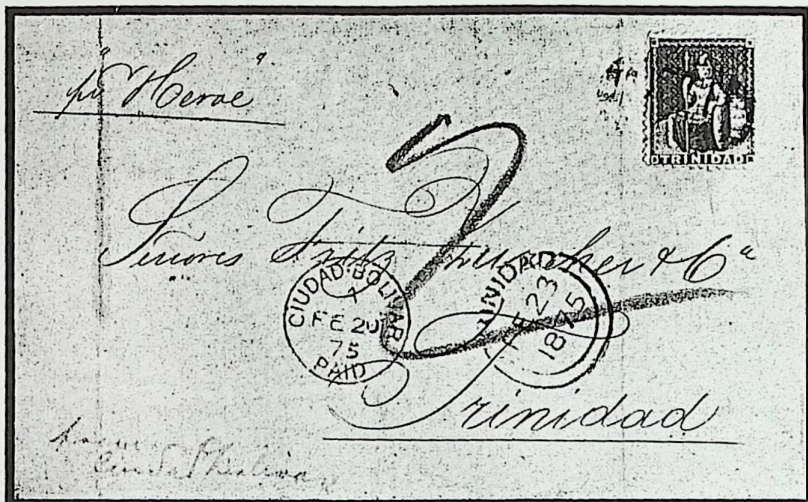 pr "Heroe"
TRINIDAD
Señores Fritz Zurcher & Cª
CIUDAD-BOLIVAR
1
FE 20
75
PAID
TRINIDAD
FE 23
1875
Trinidad
2